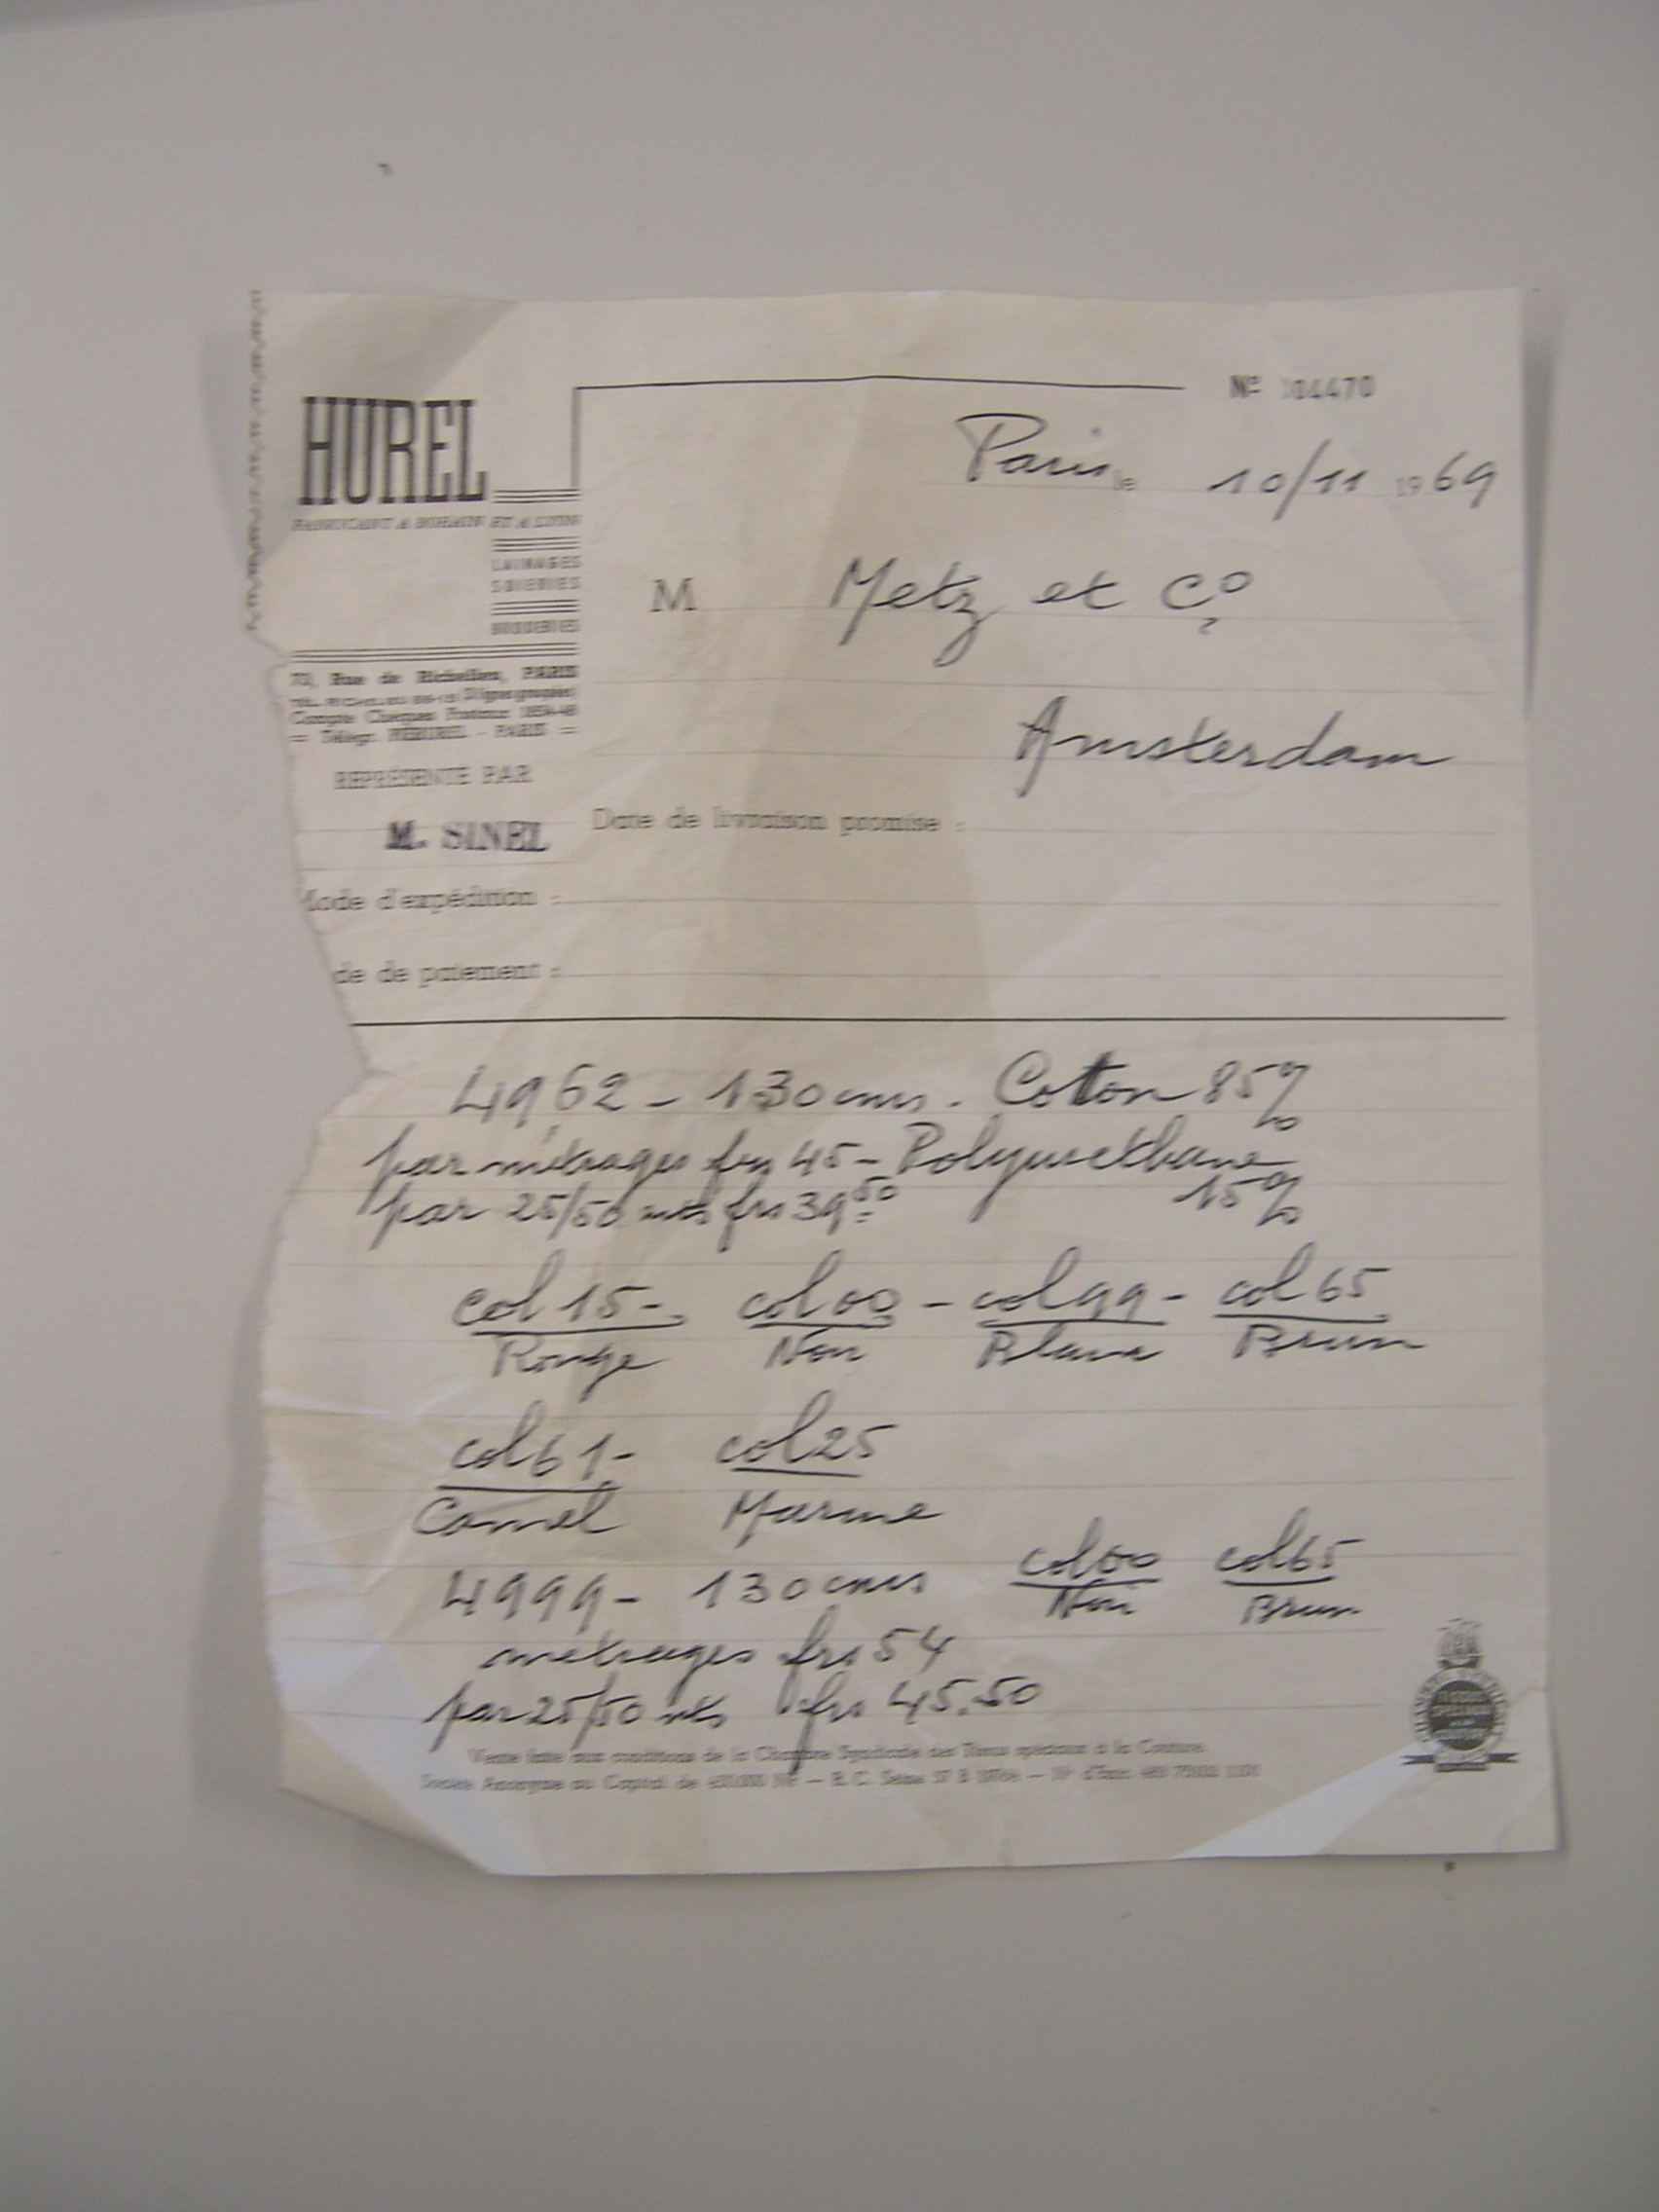 Nº 04470
HUREL
FABRICANT A BOHAIN ET A LYON
LAINAGES
SOIERIES
BRODERIES
Paris le 10/11 1969
M Metz et Cº
Amsterdam
Rue de Richelieu, PARIS
Compte Chèques Postaux
Télégr. - PARIS
REPRÉSENTÉ PAR
M. SINEL
Date de livraison promise :
Mode d'expédition :
de de paiement :
4962 - 130 cms. Coton 85%
par métrages frs 45 - Polyurethane
par 25/50 mts frs 39 50 15%
col 15 - col 00 - col 99 - col 65
Rouge Noir Blanc Brun
col 61 - col 25
Camel Marine
col 00 col 65
4999 - 130 cms Noir Brun
métrages frs 54
par 25/50 mts frs 45.50
Vente faite aux conditions de la Chambre Syndicale des Tissus spéciaux à la Couture.
Société Anonyme au Capital de NF — R.C. Seine 57 B